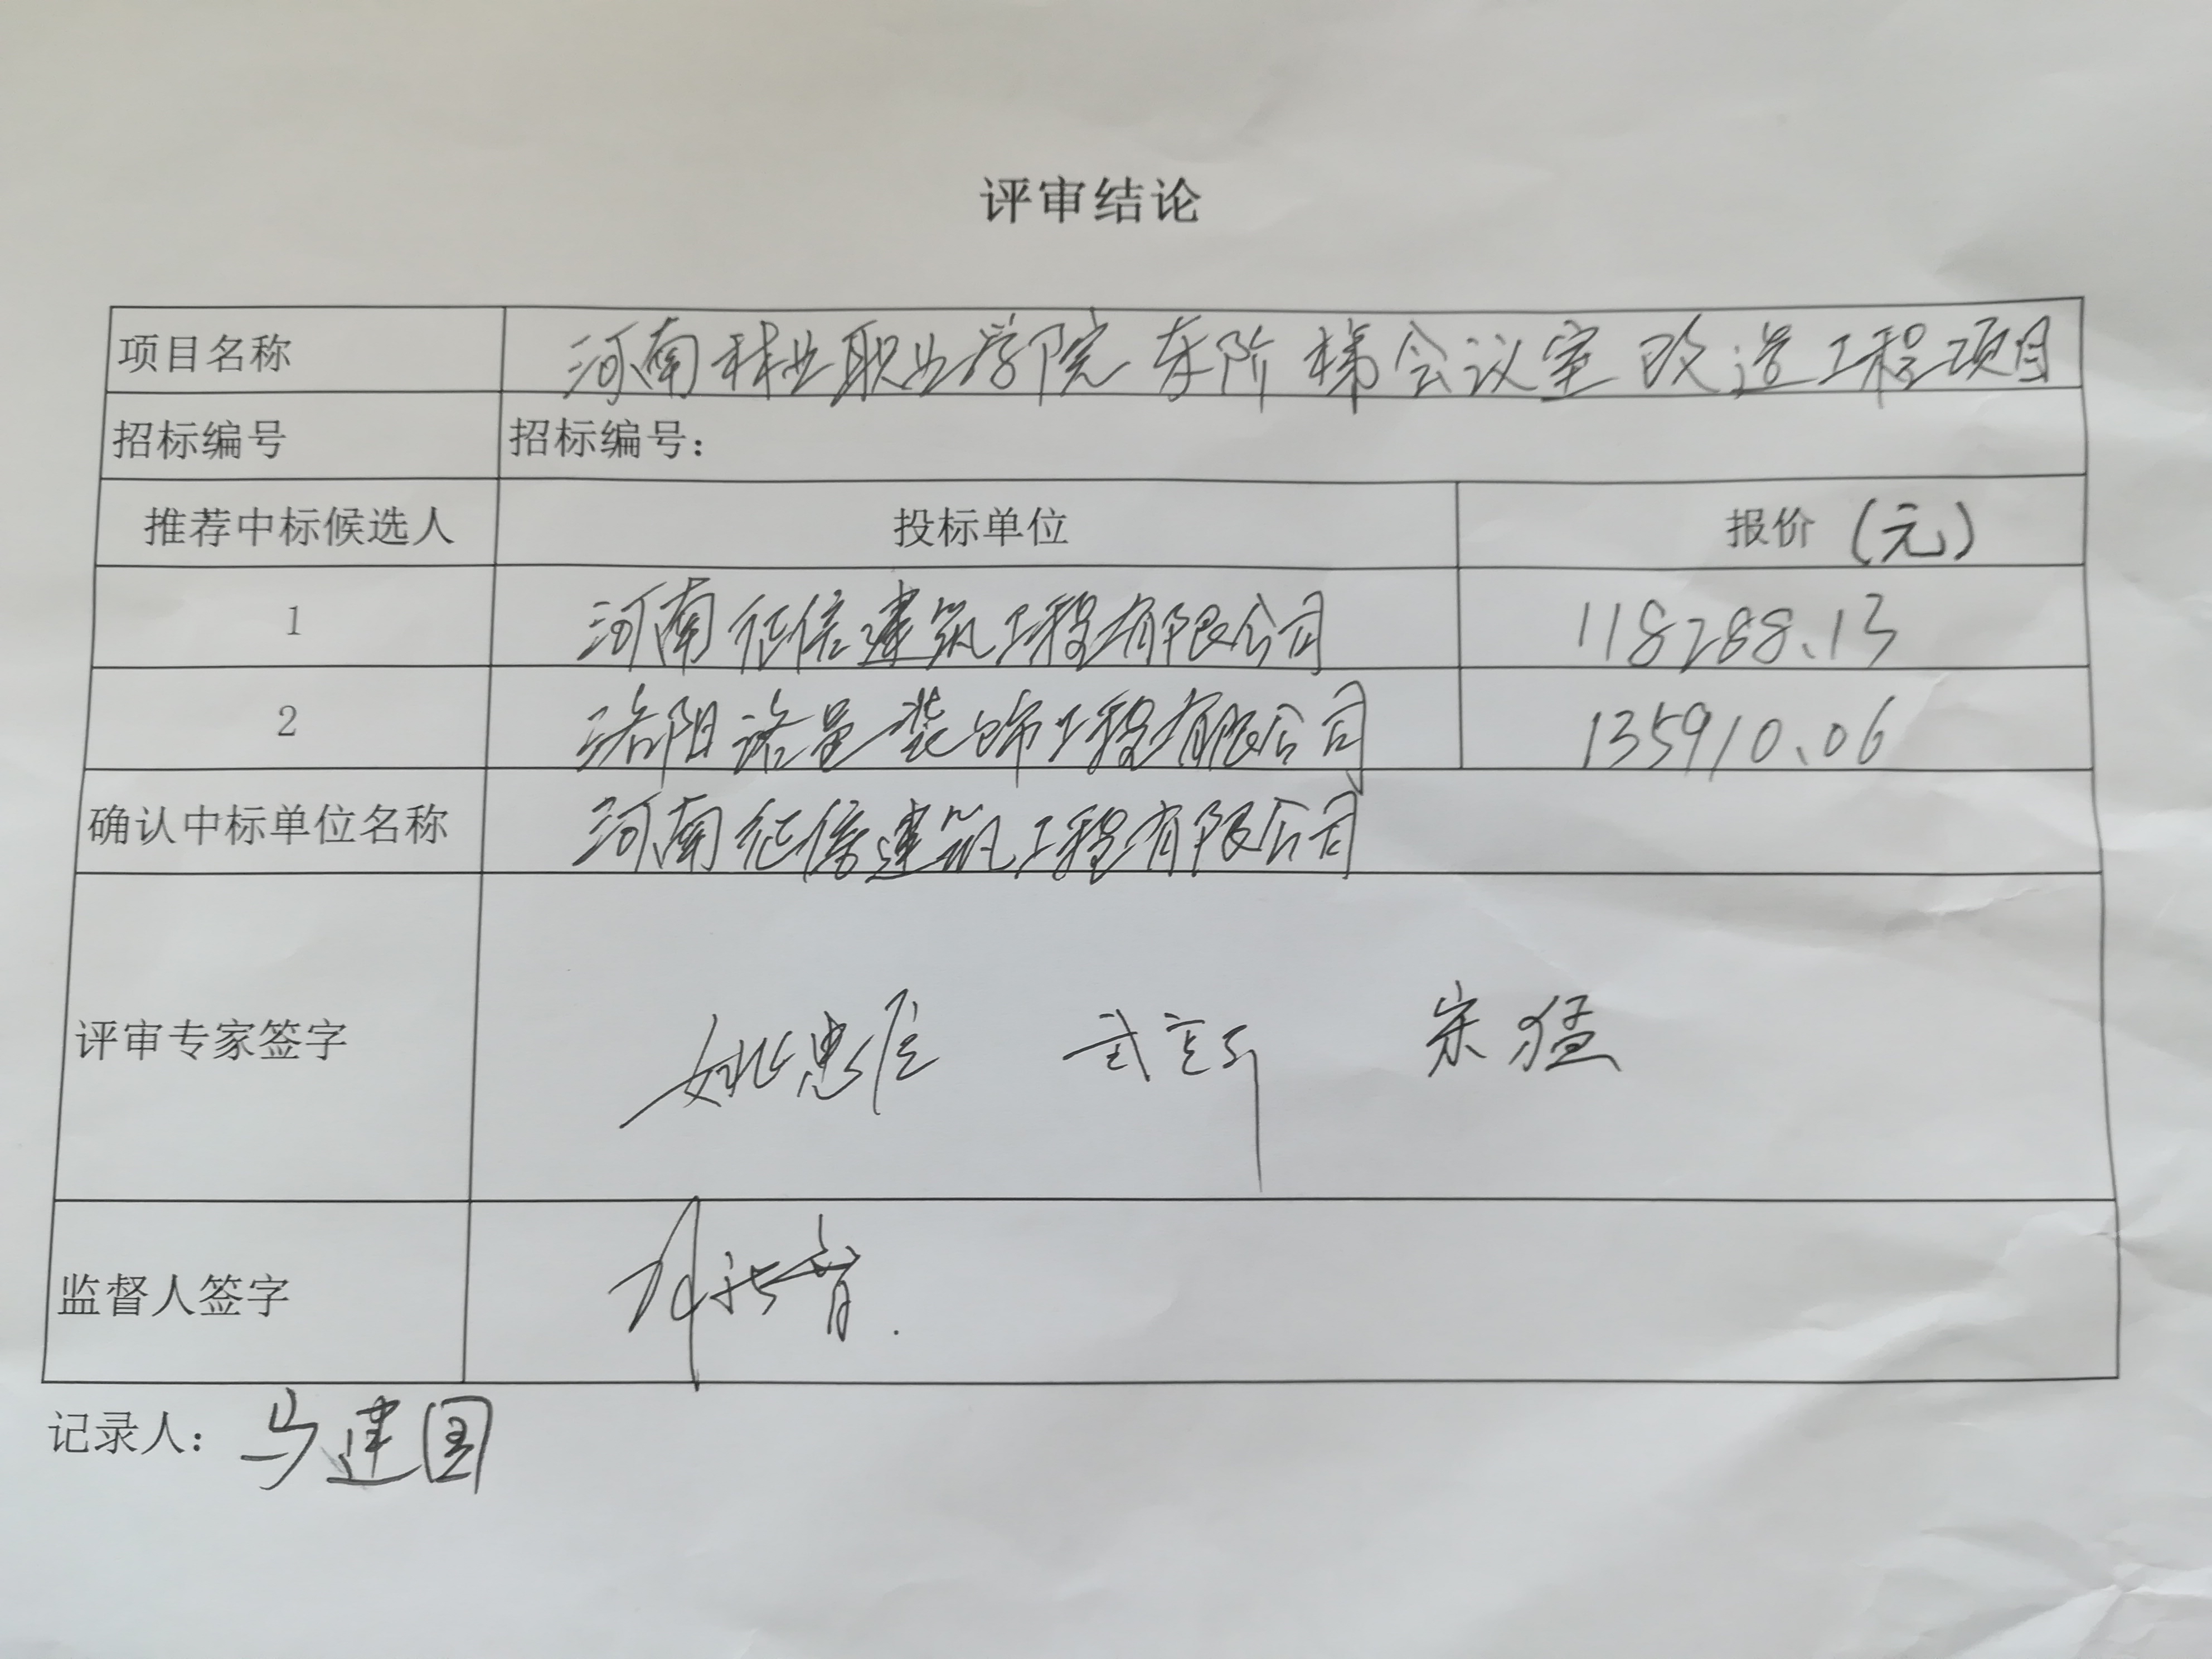 评审结论
项目名称 河南林业职业学院东阶梯会议室改造工程项目
招标编号 招标编号：
推荐中标候选人 投标单位 报价（元）
1 河南征信建筑工程有限公司 118288.13
2 洛阳诺量装饰工程有限公司 135910.06
确认中标单位名称 河南征信建筑工程有限公司
评审专家签字 姚忠 宋猛
监督人签字
记录人：马建国